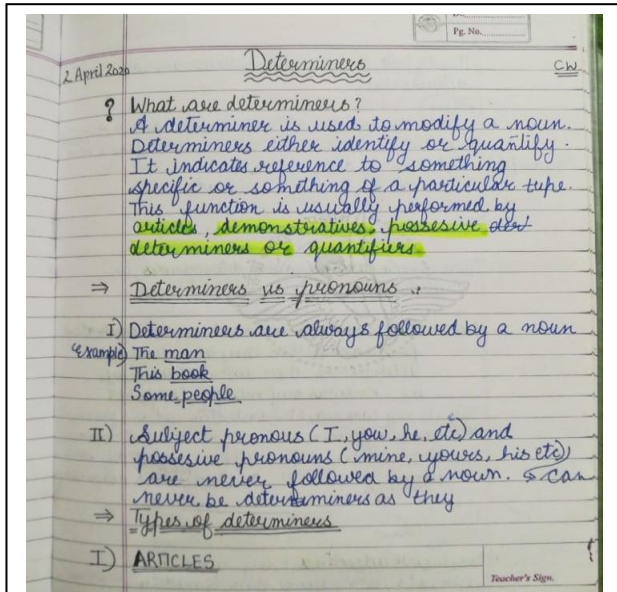 Pg. No.
2 April 2020
Determiners
CW
? What are determiners?
A determiner is used to modify a noun.
Determiners either identify or quantify.
It indicates reference to something
specific or something of a particular type.
This function is usually performed by
articles, demonstratives, possesive
determiners or quantifiers
⇒ Determiners vs pronouns :
I) Determiners are always followed by a noun
Example) The man
This book
Some people
II) Subject pronous (I, you, he, etc) and
possesive pronouns (mine, yours, his etc)
are never followed by a noun. can
never be determiners as they
⇒ Types of determiners
I) ARTICLES
Teacher's Sign.